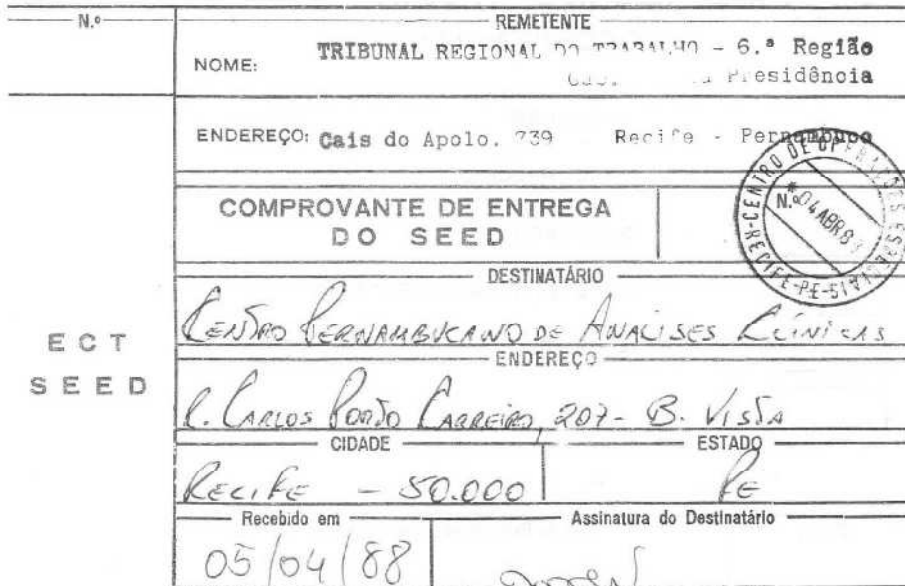 N.º
REMETENTE
NOME: TRIBUNAL REGIONAL DO TRABALHO - 6.ª Região
Presidência
ENDEREÇO: Cais do Apolo, 739 Recife - Pernambuco
COMPROVANTE DE ENTREGA
DO SEED
N.º
CENTRO DE OPERAÇÕES ESPECIAIS
RECIFE-PE
04 ABR 8
DESTINATÁRIO
CENTRO PERNAMBUCANO DE ANALISES CLÍNICAS
ENDEREÇO
R. CARLOS PORTO CARREIRO, 207 - B. VISTA
ECT
SEED
CIDADE
ESTADO
RECIFE - 50.000
PE
Recebido em
Assinatura do Destinatário
05/04/88